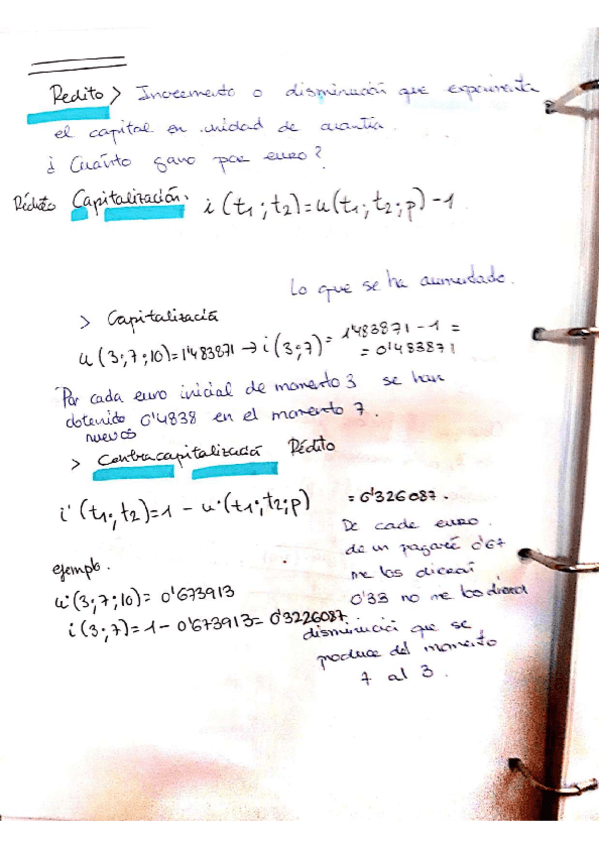 Redito > Incremento o disminución que experimenta
el capital en unidad de cuantía.
¿ Cuánto gano por euro?
Rédito Capitalización. i(t1;t2)=u(t1;t2;p)-1
Lo que se ha aumentado.
> Capitalización
u(3;7;10)=1'483871 → i(3;7)= 1'483871 - 1 =
= 0'483871
Por cada euro inicial de momento 3 se han
obtenido 0'4838 en el momento 7.
nuevos
> Contracapitalización Rédito
i'(t1;t2)=1 - u'(t1;t2;p) = 0'326087.
De cada euro
de un pagaré 0'67
me los dieran
0'33 no me los dieron
ejemplo.
u'(3;7;10)= 0'673913
i(3;7)= 1 - 0'673913= 0'3226087
disminución que se
produce del momento
7 al 3.